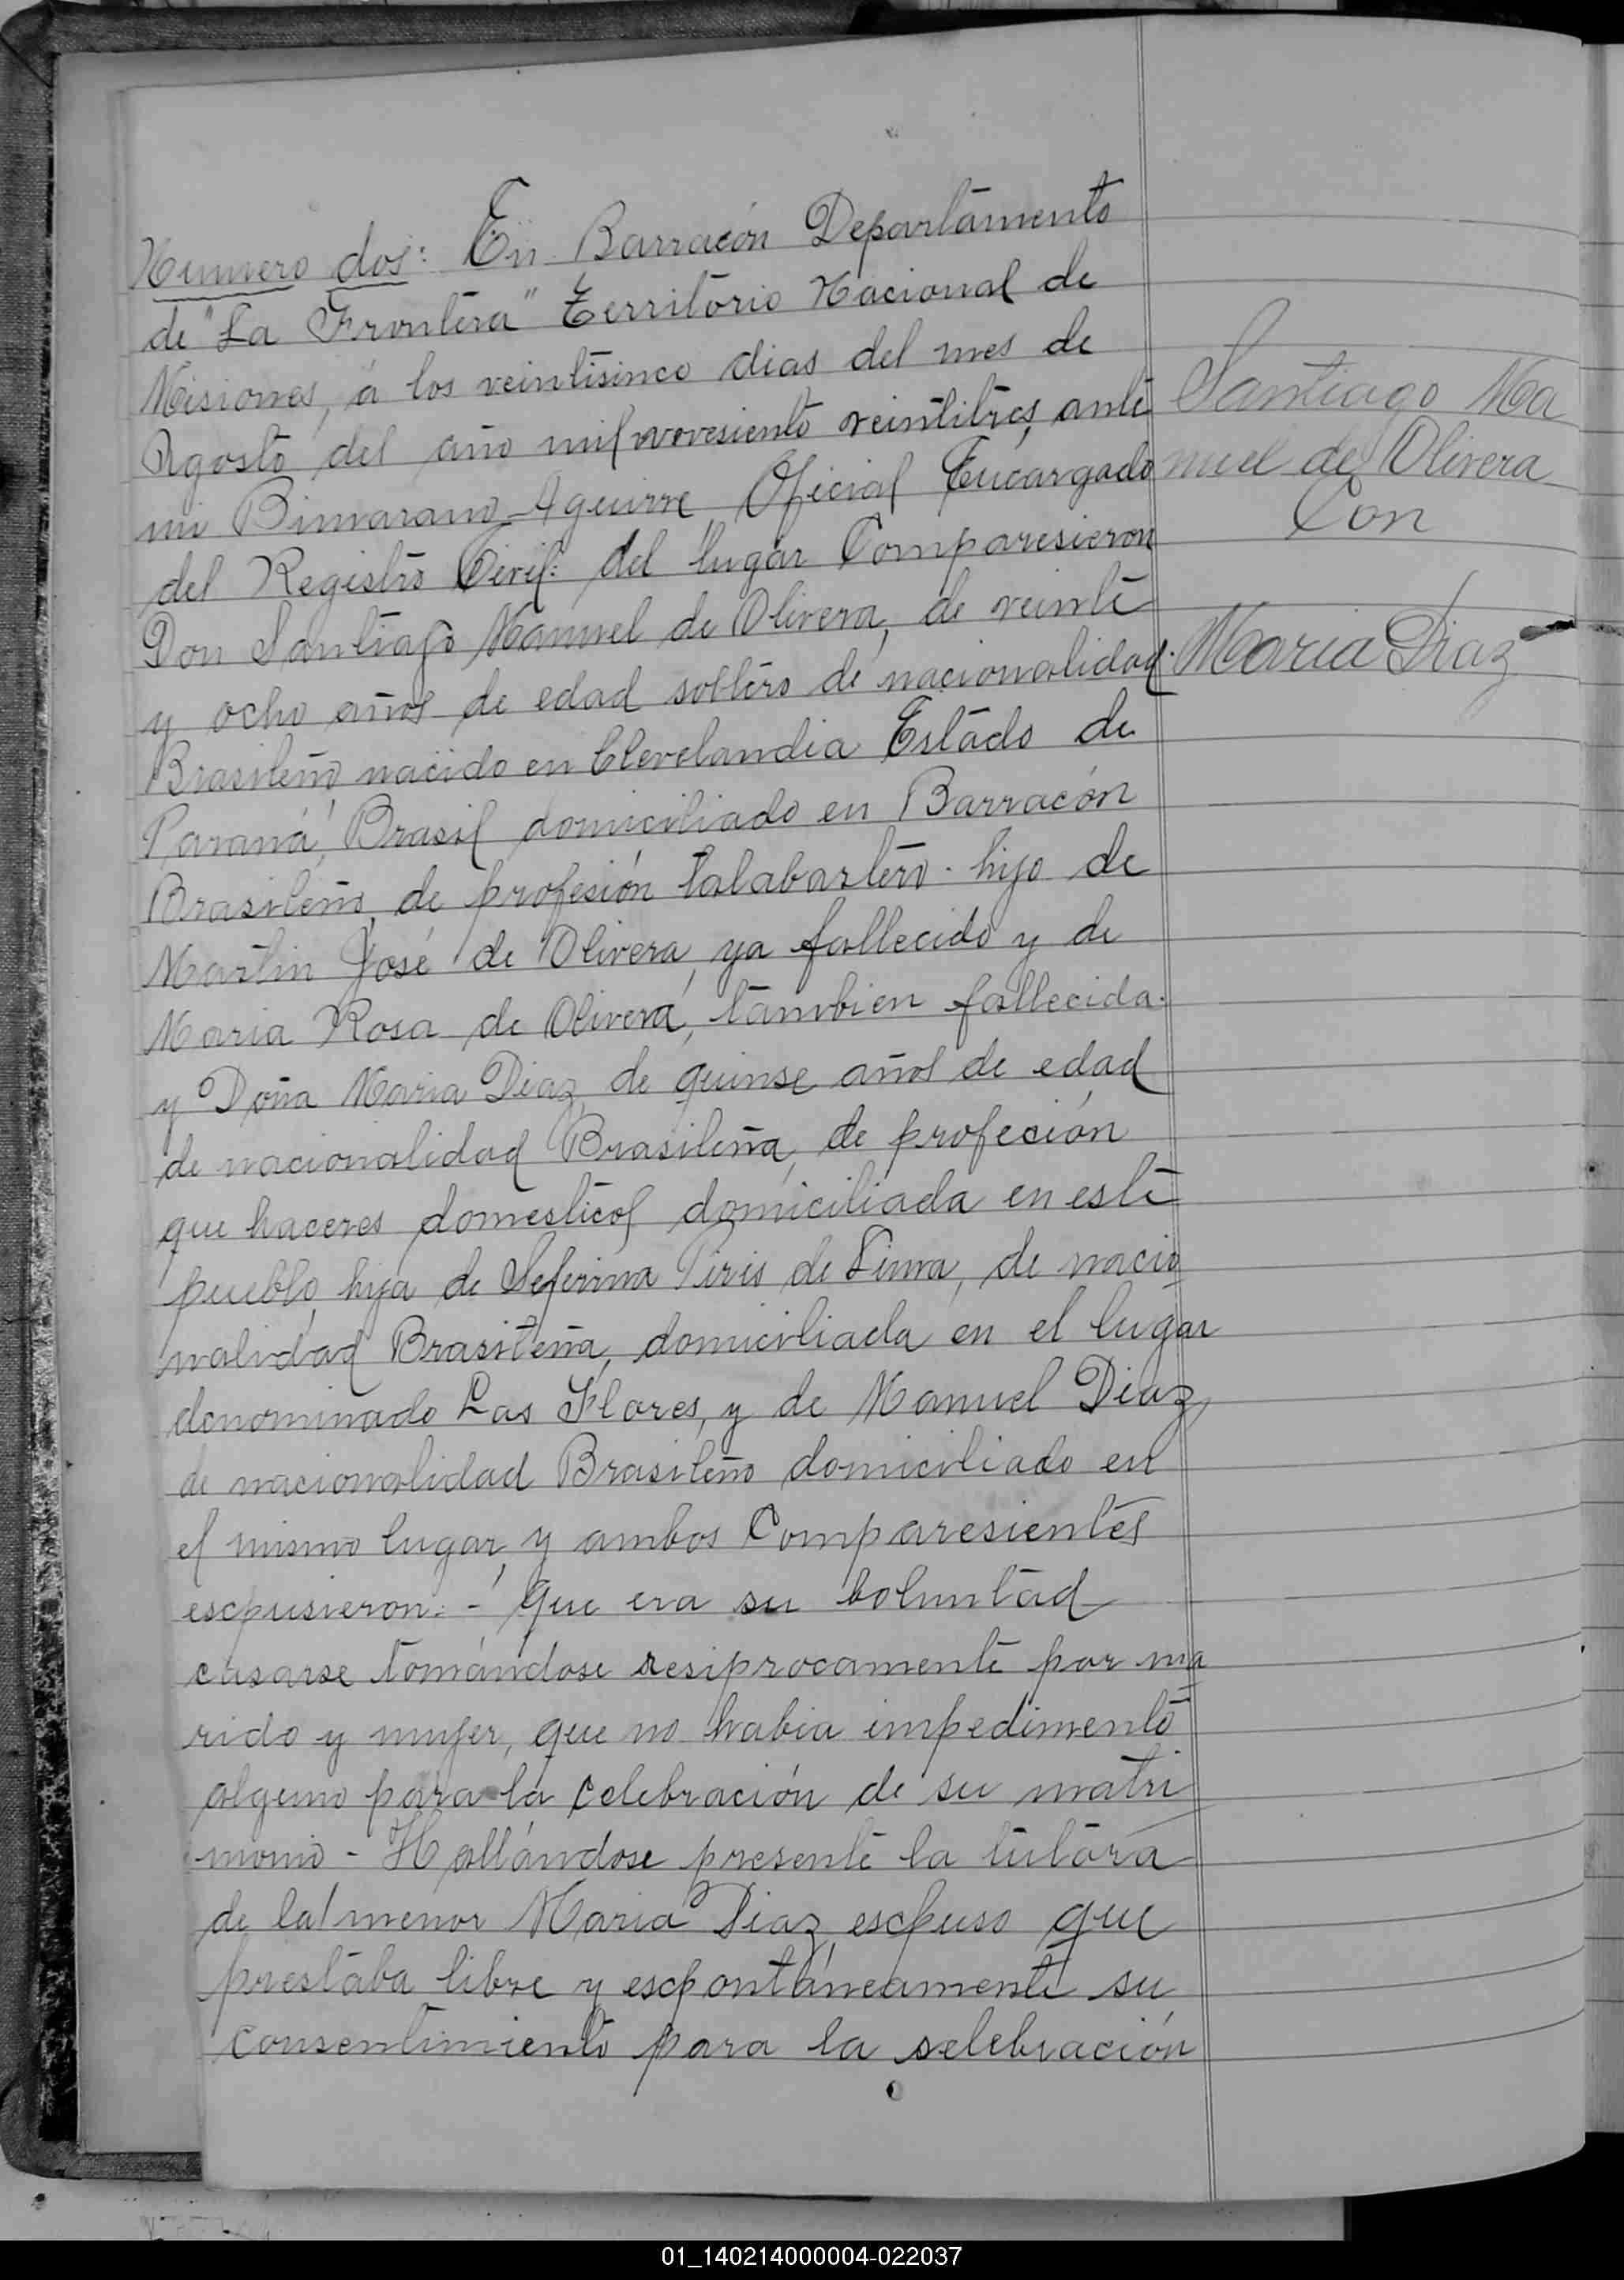 Numero dos: En Barracón Departamento
de "La Frontera" Territorio Nacional de
Misiones, á los veintisinco dias del mes de
Agosto del año mil novesiento veintitres, ante
mi Aguirre Oficial Encargado
del Registro Civil: del lugar Comparesieron
Don Santiago Manuel de Olivera, de veinte
y ocho años de edad soltero de nacionalidad
Brasileño nacido en Clevelandia Estado de
Paraná, Brasil domiciliado en Barracón
Brasileño, de profesión talabartero. hijo de
Martin José de Olivera, ya fallecido y de
Maria Rosa de Olivera, tambien fallecida.
y Doña Maria Diaz, de quinse años de edad
de nacionalidad Brasileña, de profeción
que haceres domesticos domiciliada en este
pueblo, hija de Seferina Piris de Lima, de nacio
nalidad Brasileña, domiciliada en el lugar
denominado Las Flores, y de Manuel Diaz,
de nacionalidad Brasileño domiciliado en
el mismo lugar, y ambos Comparesientes
escpusieron: - que era su boluntad
casarse tomándose resiprocamente por ma
rido y mujer, que no habia impedimento
alguno para la Celebración de su matri
monio - Hallándose presente la tutora
de la menor Maria Diaz, escpuso que
prestaba libre y escpontáneamente su
consentimiento para la selebración
Santiago Ma
nuel de Olivera
Con
Maria Diaz
01_140214000004-022037